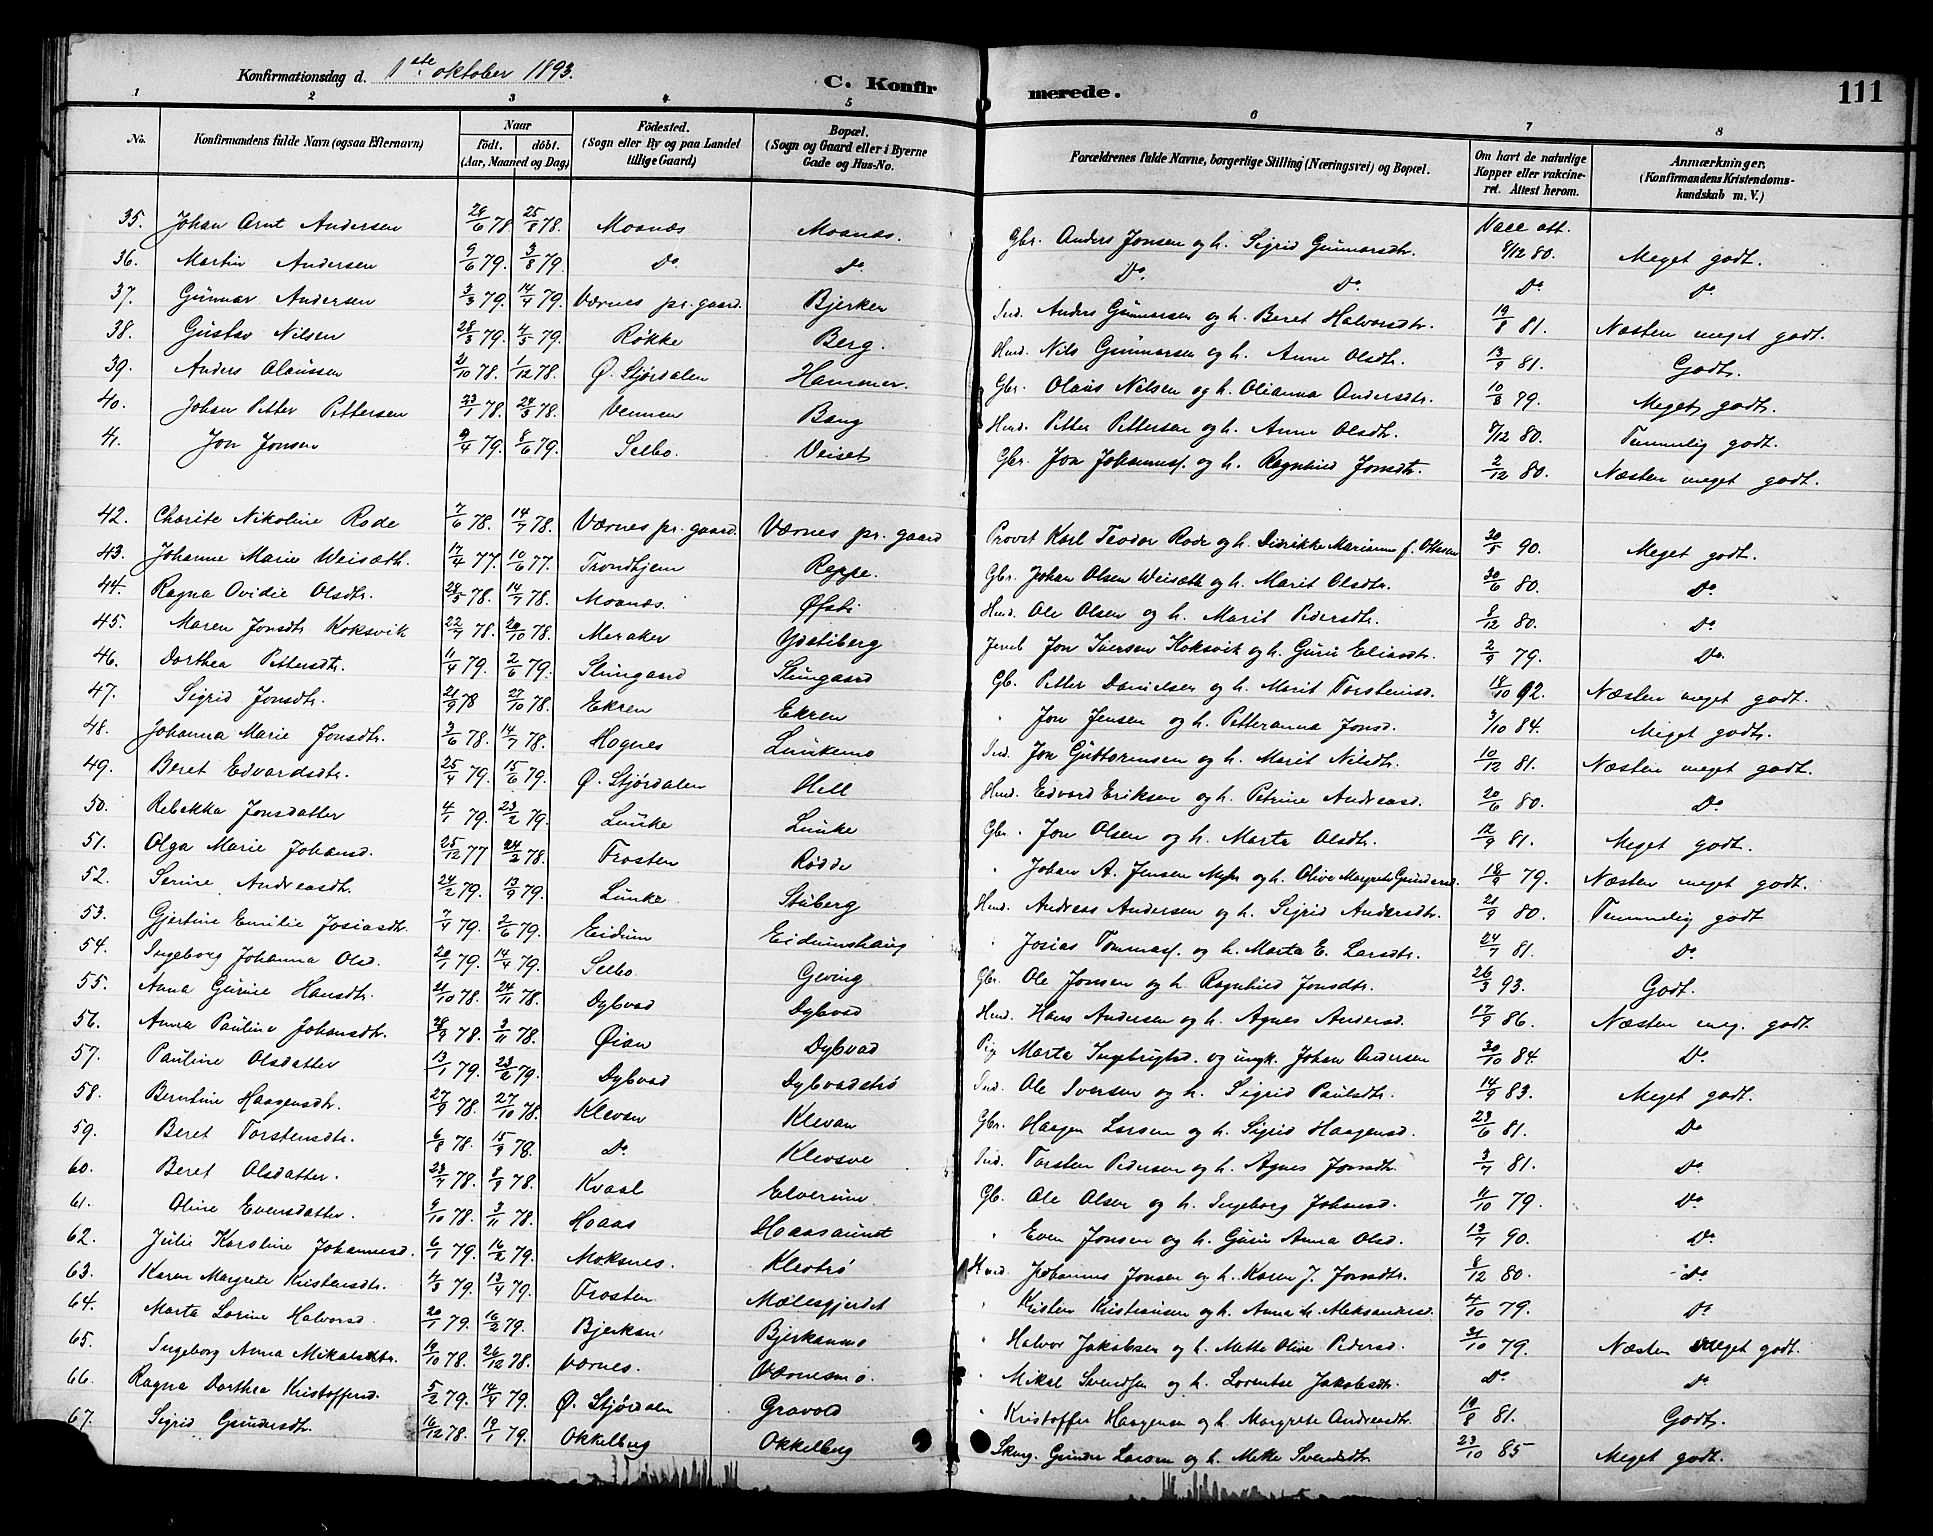 Konfirmationsdag d. 1ste oktober 1893.
C. Konfirmerede.
111
1 2 3 4 5 6 7 8
No. Konfirmandens fulde Navn (ogsaa Efternavn) Naar födt. döbt. (Aar, Maaned og Dag) Födested. (Sogn eller By og paa Landet tillige Gaard) Bopæl. (Sogn og Gaard eller i Byerne Gade og Hus-No. Forældrenes fulde Navne, borgerlige Stilling (Næringsvei) og Bopæl. Om havt de naturlige Kopper eller vakcineret. Attest herom. Anmærkninger. (Konfirmandens Kristendomskundskab m. V.)
35. Johan Arnt Andersen 24/6 78 25/8 78. Moanæs Moanæs. Gbr. Anders Jonsen og h. Sigrid Gunnarsdtr. Vacc att. 8/12 80. Meget godt.
36. Martin Andersen 9/6 79. 3/8 79. Do Do Do Do Do Do
37. Gunnar Andersen 3/3 79. 14/4 79. Værnes pr. gaard. Bjerken Ind. Anders Gunnarsen og h. Beret Halvorsdtr. 19/8 81. Næsten meget godt.
38. Gustav Nilsen 28/3 79. 4/5 79. Røkke Berg. Husd. Nils Gunnarsen og h. Anne Olsdtr. 13/9 81. Godt.
39. Anders Olaussen 21/10 78. 1/12 78. Ø. Stjørdalen Hammer. Gbr. Olaus Nilsen og h. Olianna Andersdtr. 10/8 79. Meget godt.
40. Johan Petter Pettersen 23/1 78. 24/3 78. Vennen Bang Husd. Petter Pettersen og h. Anne Olsdtr. 8/12 80. Temmelig godt.
41. Jon Jonsen 9/4 79. 8/6 79. Selbo. Veiset Gbr. Jon Johannesf. og h. Ragnhild Jonsdtr. 2/12 80. Næsten meget godt.
42. Charite Nikoline Rode 7/6 78. 14/7 78. Værnes pr. gaard. Værnes pr. gaard Provst Karl Teodor Rode og h. Didrikke Marianne f. Ottesen 30/5 90. Meget godt.
43. Johanne Marie Weisæth. 17/4 77. 10/6 77. Trondhjem Reppe. Gbr. Johan Olsen Weisæth og h. Marit Olsdtr. 30/6 80. Do
44. Ragna Ovidie Olsdtr. 28/5 78. 14/7 78. Moanæs. Øfsti Husd. Ole Olsen og h. Marit Pedersdtr. 8/12 80. Do
45. Maren Jonsdtr. Koksvik 22/7 78. 20/10 78. Meraker Ydstiberg Jernb Jon Iversen Koksvik og h. Guru Eliasdtr. 2/9 79. Do
46. Dorthea Pettersdtr. 11/4 79. 2/6 79. Slungaard Slungaard Gb. Petter Danielsen og h. Marit Torstensd. 18/10 92. Næsten meget godt.
47. Sigrid Jonsdtr. 21/9 78 27/10 78. Ekren Ekren " Jon Jensen og h. Petteranna Jonsd. 3/10 84. Meget godt.
48. Johanna Marie Jonsdtr. 3/6 78. 14/7 78. Hognes Lunkemo Ind. Jon Guttormsen og h. Marit Nilsdtr. 10/12 81. Næsten meget godt.
49. Beret Edvardsdtr. 25/4 79. 15/6 79. Ø. Stjørdalen Hell Husd. Edvard Eriksen og h. Petrine Andreasd. 20/6 80. Do
50. Rebekka Jonsdatter 4/1 79. 23/2 79. Lunke Lunke Gbr. Jon Olsen og h. Marta Olsdtr. 12/9 81. Meget godt.
51. Olga Marie Johansd. 25/12 77 24/2 78. Frosten Rødde " Johan A. Jensen Myhr og h. Olive Margrete Gundersd. 18/9 79. Næsten meget godt.
52. Serine Andreasdtr. 24/2 79. 13/9 79. Lunke Stuberg Husd. Andreas Andersen og h. Sigrid Andersdtr. 21/9 80. Temmelig godt
53. Gjertine Emilie Josiasdtr. 7/4 79. 2/6 79. Eidum Eidumshaug " Josias Tommasf. og h. Marta E. Larsdtr. 24/7 81. Do
54. Ingeborg Johanna Olsd. 20/1 79. 14/4 79. Selbo. Geving Gbr. Ole Jonsen og h. Ragnhild Jonsdtr. 26/3 93. Godt.
55. Anna Gurine Hansdtr. 21/10 78. 24/11 78. Dybvad Dybvad Husd. Hans Andersen og h. Agnes Andersd. 17/9 86. Næsten meg. godt
56. Anna Pauline Johansdtr. 28/9 78. 3/11 78. Øian Dybvad Pig Marta Ingebrigtsd. og ungk. Johan Andersen 30/10 84. Do
57. Pauline Olsdatter 13/1 79. 23/2 79. Dybvad Dybvadstrø Ind. Ole Iversen og h. Sigrid Paulsdtr. 14/9 83. Meget godt.
58. Berntine Haagensdtr. 27/9 78. 27/10 78. Klevan Klevan Gbr. Haagen Larsen og h. Sigrid Haagensd. 23/6 81. Do
59. Beret Torstensdtr. 6/8 78. 15/9 78. Do Klevsve Ind. Torsten Pedersen og h. Agnes Jonsdtr. 3/7 81. Do
60. Beret Olsdatter. 23/7 78. 8/9 78. Kvaal Elverum Gb. Ole Olsen og h. Ingeborg Johansd. 11/10 79. Do
61. Oline Evensdatter. 9/10 78. 3/11 78. Hoaas Hoaasaunet " Even Jonsen og h. Guru Anna Olsd. 13/7 90. Do
62. Julie Karoline Johannesd. 6/1 79. 16/2 79. Moksnes. Klevtrø Husd. Johannes Jonsen og h. Karen J. Jonsdtr. 8/12 80. Do
63. Karen Margrete Kristensdtr. 4/3 79. 13/4 79. Frosten Mælesgjerdet " Kristen Kristiansen og h. Anna M. Aleksandersd. 4/10 79. Do
64. Marta Lorine Halvorsd. 20/1 79. 16/2 79. Bjerkan Bjerkanmo " Halvor Jakobsen og h. Mette Olive Pedersd. 31/10 79. Næsten meget godt.
65. Ingeborg Anna Mikalsdtr. 19/10 78. 26/12 78. Værnes. Værnesmo. " Mikal Svendsen og h. Lorentse Jakobsdtr. Do Do
66. Ragna Dorthea Kristoffersd. 5/2 79. 14/4 79. Ø. Stjørdalen Gravold " Kristoffer Haagensen og h. Margrete Andreasdtr. 19/8 81. Godt.
67. Sigrid Gundersdtr. 16/12 78. 19/1 79. Okkelberg Okkelberg Skrog. Gunder Larsen og h. Mette Svendsdtr. 23/10 85 Meget godt.